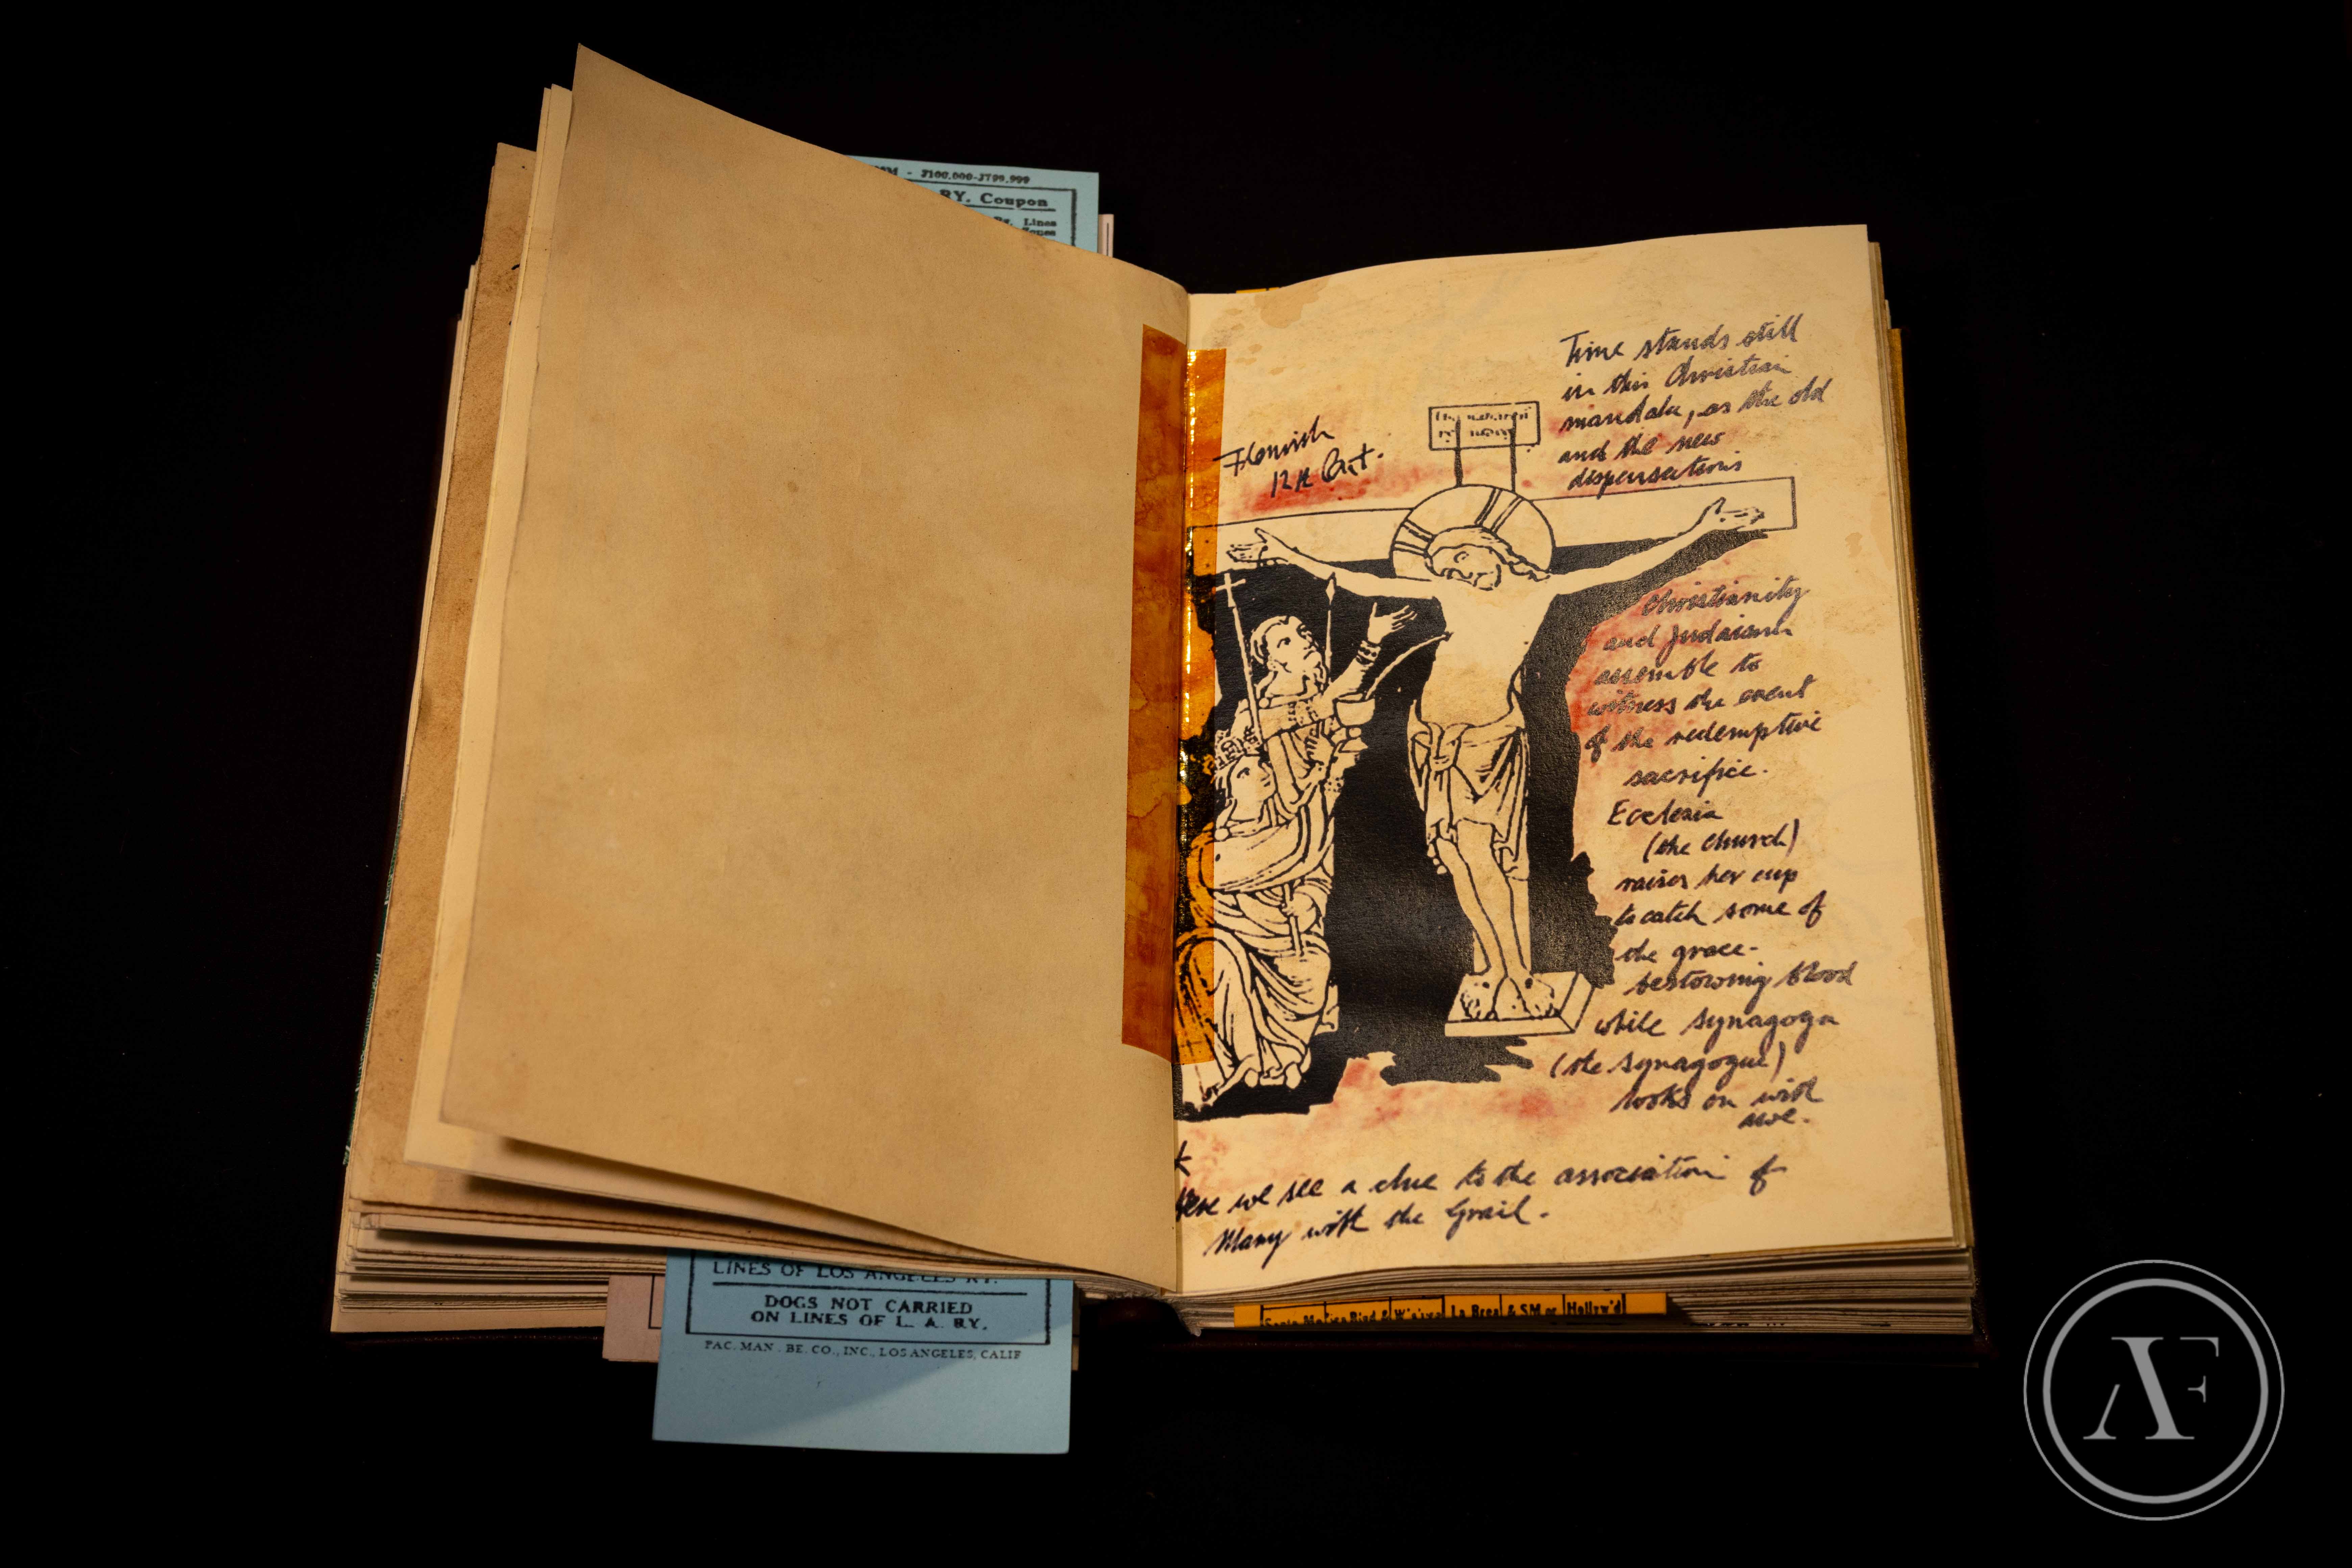 J100.000-J799.999
RY. Coupon
Lines
Flemish
12th Cent.
Time stands still
in this Christian
mandala, as the old
and the new
dispensations
Christianity
and Judaism
assemble to
witness the event
of the redemptive
sacrifice.
Ecclesia
(the church)
raises her cup
to catch some of
the grace-
bestowing blood
while Synagoga
(the synagogue)
looks on with
awe.
*
Here we see a clue to the association of
Mary with the Grail.
LINES OF LOS ANGELES RY.
DOGS NOT CARRIED
ON LINES OF L. A. RY.
PAC. MAN. BE. CO., INC., LOS ANGELES, CALIF
Santa Monica Blvd & La Brea & S.M. or Hollyw'd
AF